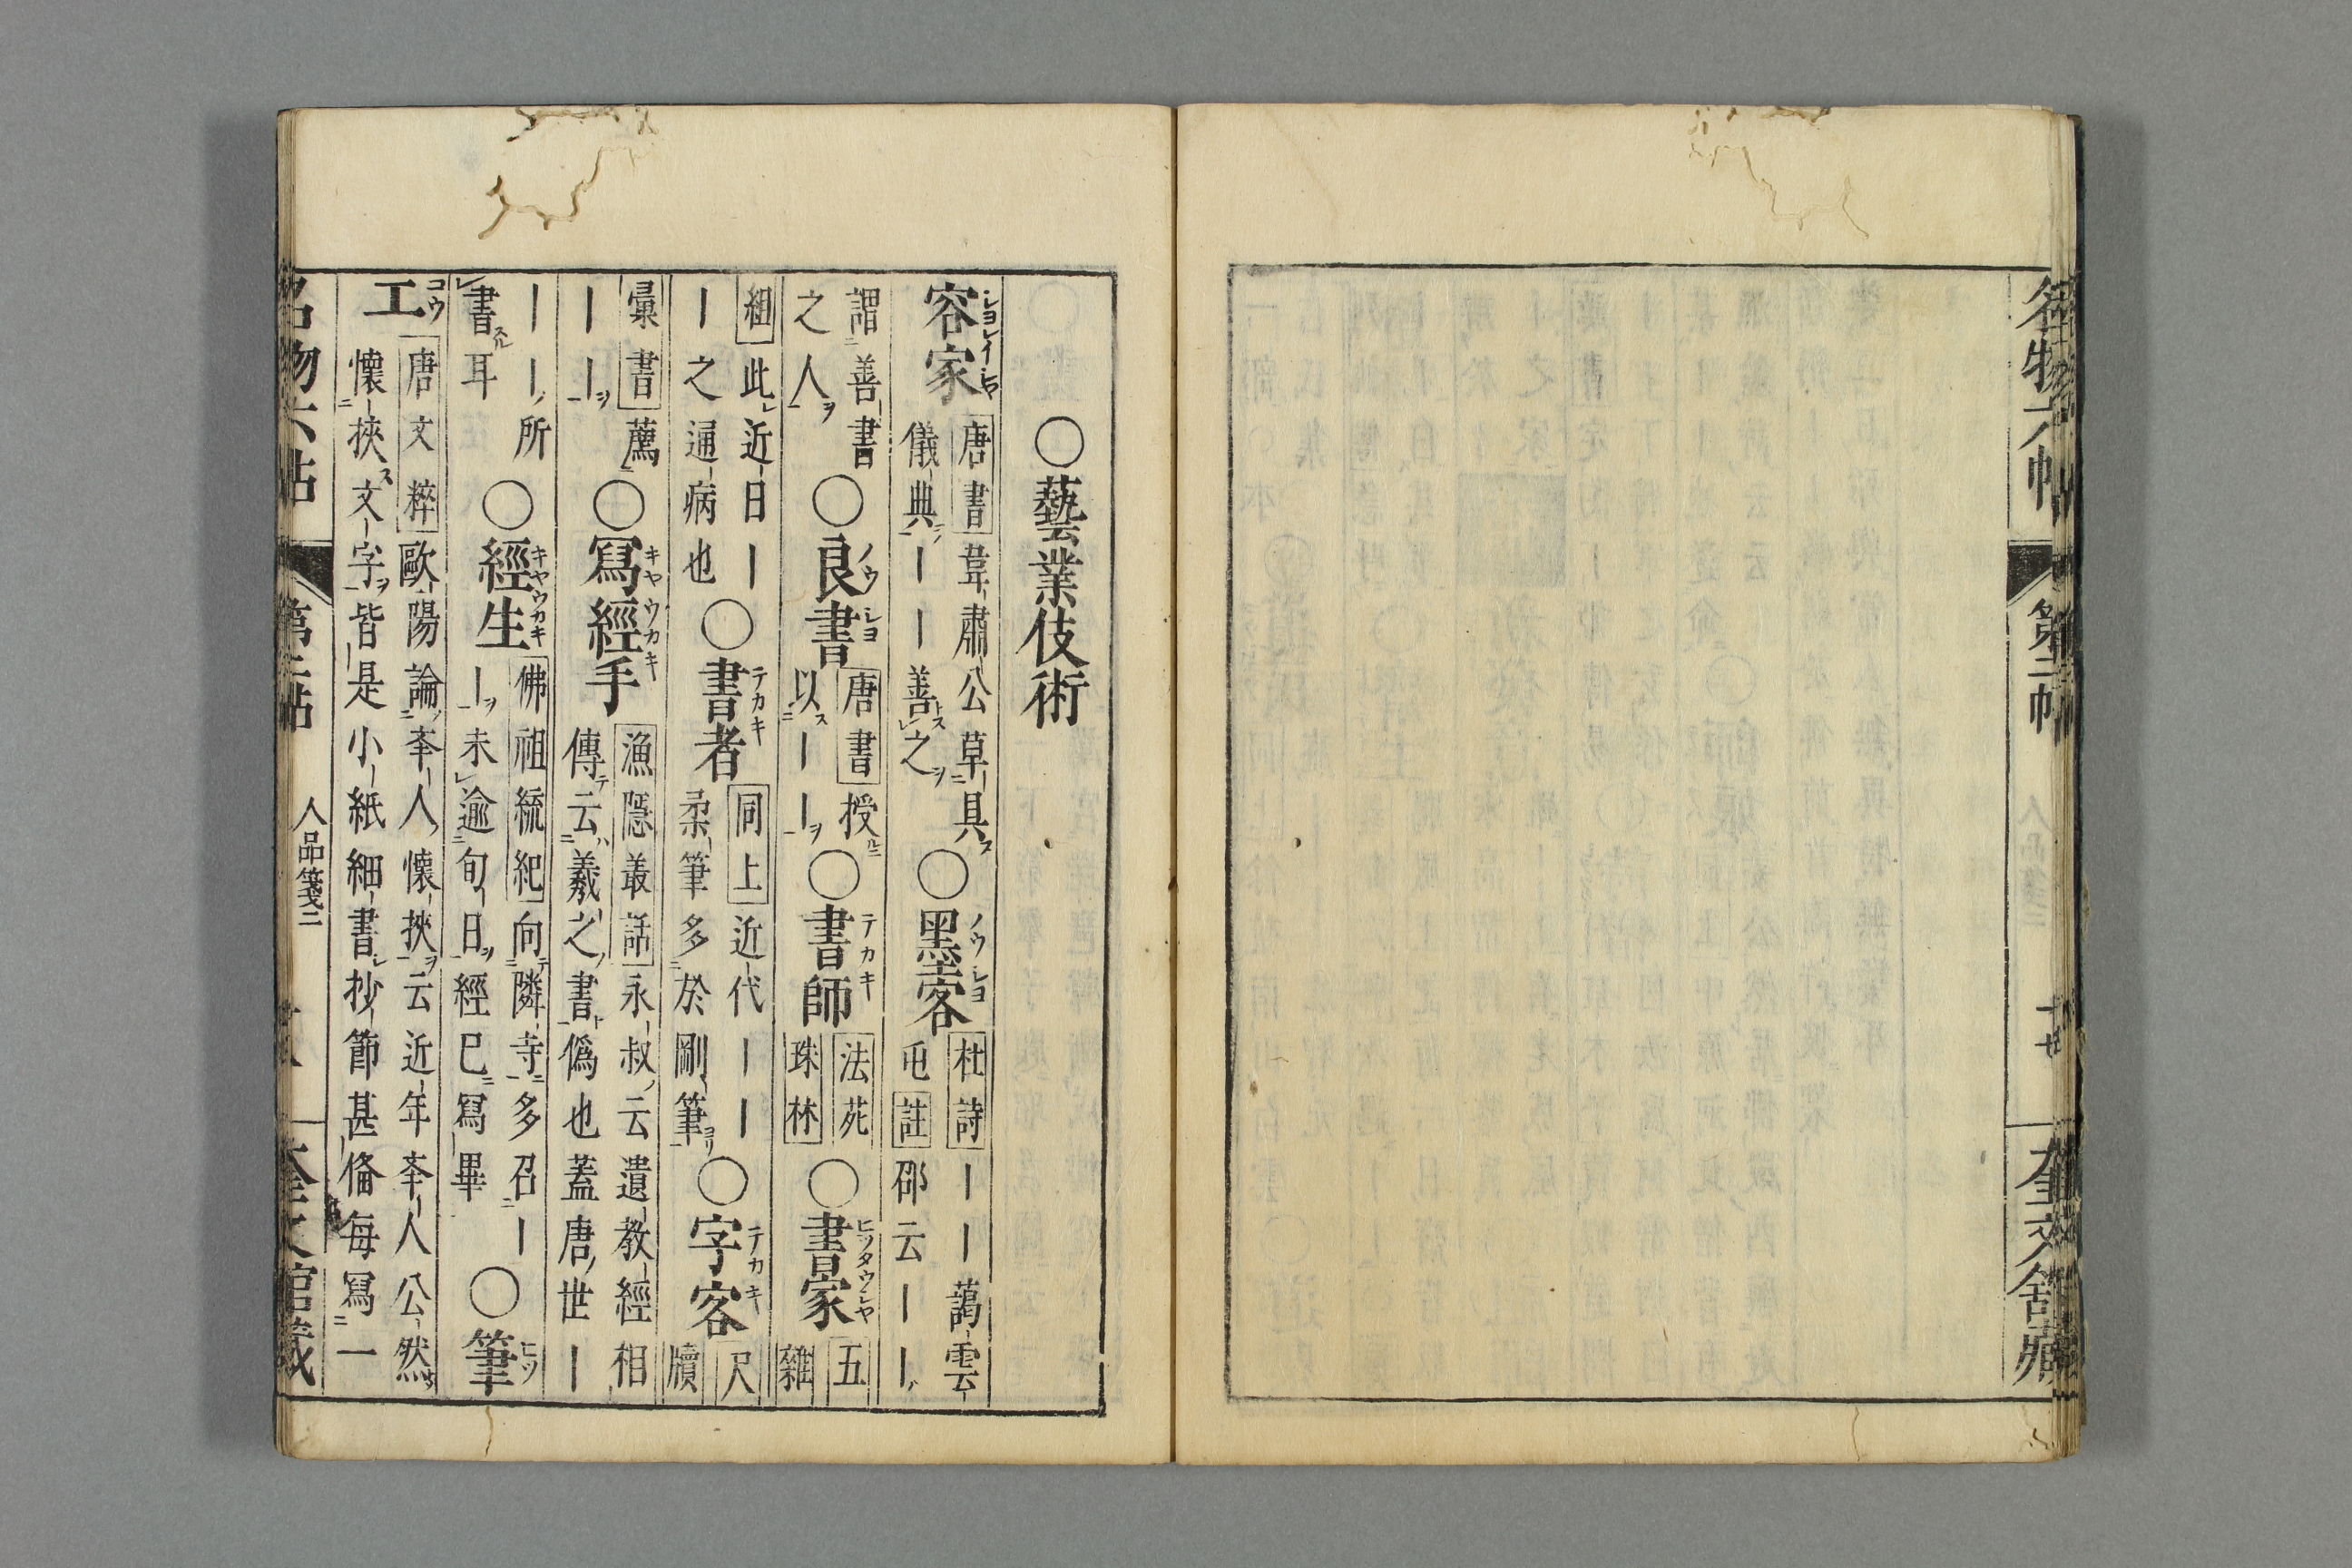 名物六帖
第二帖
奎文舘藏
○藝業伎術
容家 唐書 韋肅公草具
儀典ーー善之 ○墨客 杜詩 ーー藹雲
屯 註 邵云ーー
謂善書
之人 ○良書 唐書 授
以ーー ○書師 法苑
珠林 ○書家 五
雜
組 此近日ー
ー之通病也 ○書者 同上 近代ーー
柔筆多於剛筆 ○字客 尺
牘
彙書 薦
ーー ○冩經手 漁隱叢話 永叔云遺教經相
傳云羲之書僞也蓋唐世ー
ーー所
書耳 ○經生 佛祖統紀 向隣寺多召ー
ー未逾旬日經已冩畢 ○筆
工 唐文粹 歐陽論李人懷挾云近年李人公然
懷挾文字皆是小紙細書抄節甚俻每冩一
名物六帖
第二帖
人品箋二
十八
奎文舘藏